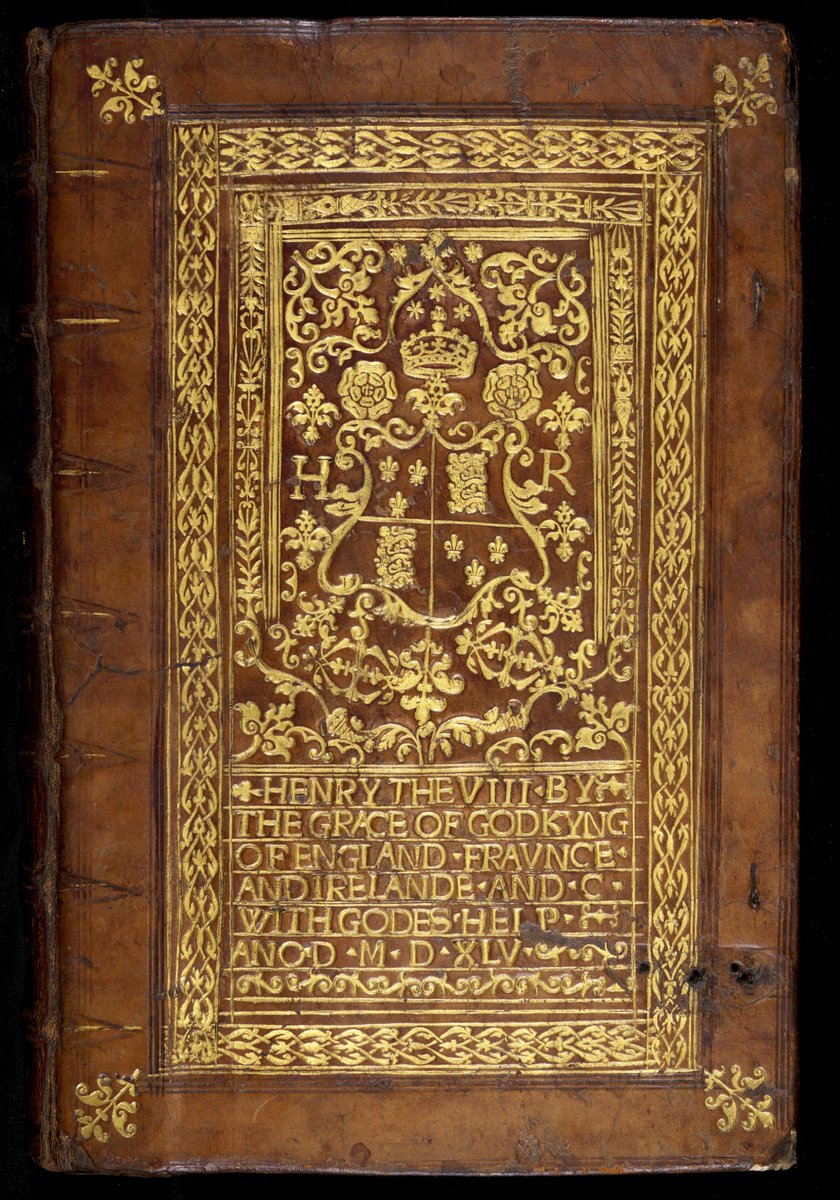 H R
HENRY THE VIII · BY
THE GRACE OF GOD KYNG
OF ENGLAND · FRAVNCE ·
AND IRELANDE · AND · C ·
WITH GODES · HELP ·
ANO · D · M · D · XLV ·